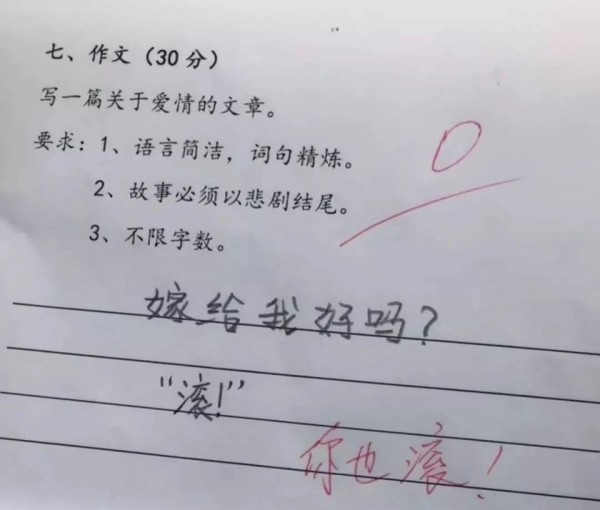 七、作文（30分）
写一篇关于爱情的文章。
要求：1、语言简洁，词句精炼。
2、故事必须以悲剧结尾。
3、不限字数。
0
嫁给我好吗？
“滚！”
你也滚！